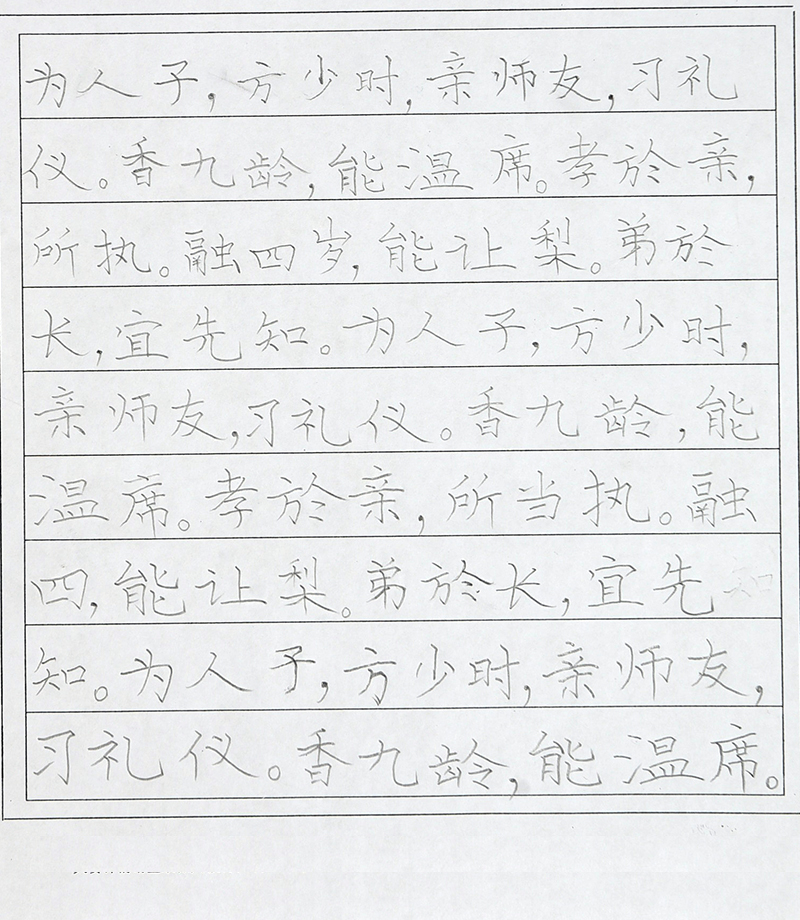 为人子，方少时，亲师友，习礼
仪。香九龄，能温席。孝於亲，
所执。融四岁，能让梨。弟於
长，宜先知。为人子，方少时，
亲师友，习礼仪。香九龄，能
温席。孝於亲，所当执。融
四，能让梨。弟於长，宜先
知。为人子，方少时，亲师友，
习礼仪。香九龄，能温席。